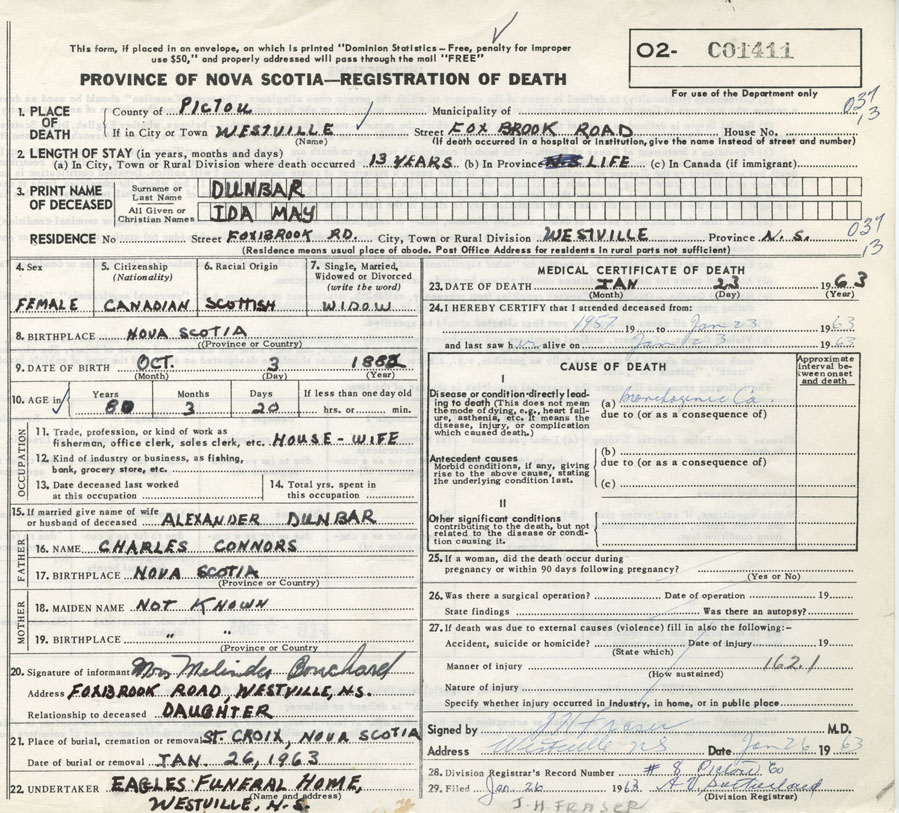 This form, if placed in an envelope, on which is printed "Dominion Statistics – Free, penalty for improper
use $50," and properly addressed will pass through the mail "FREE"
PROVINCE OF NOVA SCOTIA—REGISTRATION OF DEATH
O2- C01411
For use of the Department only
1. PLACE OF DEATH
County of PICTOU Municipality of
037
13
If in City or Town WESTVILLE Street FOX BROOK ROAD House No.
(Name) (If death occurred in a hospital or institution, give the name instead of street and number)
2. LENGTH OF STAY (in years, months and days)
(a) In City, Town or Rural Division where death occurred 13 YEARS (b) In Province LIFE (c) In Canada (if immigrant)
3. PRINT NAME OF DECEASED
Surname or Last Name DUNBAR
All Given or Christian Names IDA MAY
RESIDENCE No Street FOXIBROOK RD. City, Town or Rural Division WESTVILLE Province N. S.
037
13
(Residence means usual place of abode. Post Office Address for residents in rural parts not sufficient)
4. Sex
FEMALE
5. Citizenship
(Nationality)
CANADIAN
6. Racial Origin
SCOTTISH
7. Single, Married,
Widowed or Divorced
(write the word)
WIDOW
8. BIRTHPLACE NOVA SCOTIA
(Province or Country)
9. DATE OF BIRTH OCT. 3 1882
(Month) (Day) (Year)
10. AGE in
Years Months Days If less than one day old
80 3 20 hrs. or min.
OCCUPATION
11. Trade, profession, or kind of work as
fisherman, office clerk, sales clerk, etc. HOUSE-WIFE
12. Kind of industry or business, as fishing,
bank, grocery store, etc.
13. Date deceased last worked
at this occupation
14. Total yrs. spent in
this occupation
15. If married give name of wife
or husband of deceased ALEXANDER DUNBAR
FATHER
16. NAME CHARLES CONNORS
17. BIRTHPLACE NOVA SCOTIA
(Province or Country)
MOTHER
18. MAIDEN NAME NOT KNOWN
19. BIRTHPLACE " "
(Province or Country
20. Signature of informant Mrs Melinda Bouchard
Address FOXBROOK ROAD WESTVILLE, N.S.
Relationship to deceased DAUGHTER
21. Place of burial, cremation or removal ST. CROIX, NOVA SCOTIA
Date of burial or removal JAN. 26, 1963
22. UNDERTAKER EAGLES FUNERAL HOME,
(Name and address)
WESTVILLE, N.S.
MEDICAL CERTIFICATE OF DEATH
23. DATE OF DEATH JAN 23 1963
(Month) (Day) (Year)
24. I HEREBY CERTIFY that I attended deceased from:
1957 19 to Jan 23 1963
and last saw her alive on Jan 23 1963
CAUSE OF DEATH
Approximate
interval be-
tween onset
and death
I
Disease or condition directly lead-
ing to death (This does not mean
the mode of dying, e.g., heart fail-
ure, asthenia, etc. It means the
disease, injury, or complication
which caused death.)
(a) Bronchogenic Ca.
due to (or as a consequence of)
Antecedent causes
Morbid conditions, if any, giving
rise to the above cause, stating
the underlying condition last.
(b)
due to (or as a consequence of)
(c)
II
Other significant conditions
contributing to the death, but not
related to the disease or condi-
tion causing it.
25. If a woman, did the death occur during
pregnancy or within 90 days following pregnancy?
(Yes or No)
26. Was there a surgical operation? Date of operation 19
State findings Was there an autopsy?
27. If death was due to external causes (violence) fill in also the following:–
Accident, suicide or homicide? Date of injury 19
(State which)
Manner of injury 162.1
(How sustained)
Nature of injury
Specify whether injury occurred in Industry, in home, or in public place
Signed by J H Fraser M.D.
Address Westville NS Date Jan 26 1963
28. Division Registrar's Record Number # 8 Pictou Co
29. Filed Jan. 26 1963
(Division Registrar)
J. H FRASER